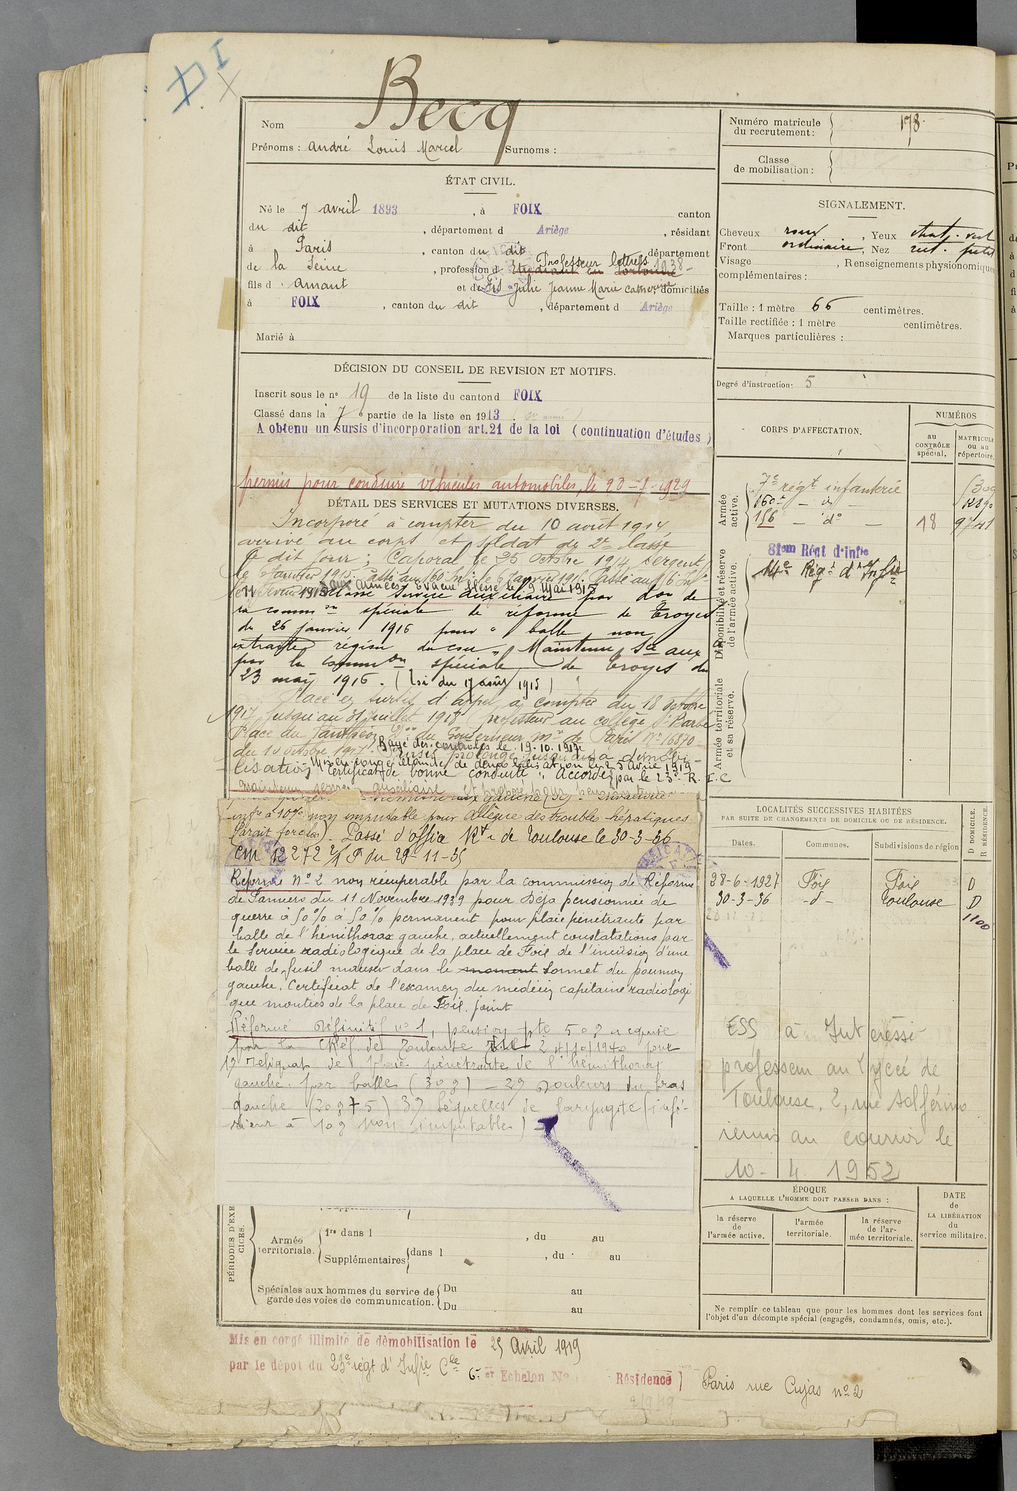 Becq
Nom
Prénoms : André Louis Marcel Surnoms :
ÉTAT CIVIL.
Né le 7 avril 1893, à FOIX canton
du dit, département d Ariège, résidant
à Paris, canton du dit département
de la Seine, profession d Etudiant en Professeur lettres 1938-
fils d' Amant et de Julie Jeanne Marie Catherine domiciliés
à FOIX, canton du dit, département d Ariège
Marié à
DÉCISION DU CONSEIL DE REVISION ET MOTIFS.
Inscrit sous le n° 19 de la liste du canton d FOIX
Classé dans la 7e partie de la liste en 1913
A obtenu un sursis d'incorporation art. 21 de la loi (continuation d'études)
permis pour conduire véhicules automobiles, le 1929
DÉTAIL DES SERVICES ET MUTATIONS DIVERSES.
Incorporé à compter du 10 août 1914
arrivé au corps et soldat de 2e classe
le dit jour ; Caporal le 25 Octobre 1914, sergent
le Janvier 1915
Classé service auxiliaire par don de
la common spéciale de réforme de Troyes
du 26 janvier 1916 pour " balle non
extraite région du cou ". Maintenu Sce aux
par la Common spéciale de Troyes du
23 mai 1916. (Loi du 17 août 1915)
Placé en sursis d'appel à compter du 18 octobre
1917 jusqu'au 31 juillet 1918 professeur au collège Ste Barbe
Place du Panthéon du Gouverneur mre de Paris N° 16870
du 10 octobre 1917. Rayé des contrôles le 19.10.1917
Sursis prolongé jusqu'à la démobi-
lisation. Mis en congé illimité de démobilisation le 25 Avril 1919
Certificat de bonne conduite " Accordé " par le 23e R.I.C
infre à 10% non imputable pour Allègue des troubles hépatiques
(Parait foreson). Passé d'offia Rt de Toulouse le 30-3-36
CM 12272 /F du 29-11-35
Réforme N° 2 non récupérable par la commission de Réforme
de Pamiers du 11 Novembre 1939 pour Déjà pensionnée de
guerre à 50% à 50% permanent pour plaie pénétrante par
balle de l'hémithorax gauche, actuellement constatations par
le service radiologique de la place de Foix de l'incision d'une
balle de fusil mauser dans le sommet du poumon
gauche. Certificat de l'examen du médecin capitaine radiologi
que montres de la place de Foix. joint
Réformé Définitif n° 1, pension pte 50% acquise
par la CRéf de Toulouse du 24/10/1940 pour
1° Reliquat de plaie pénétrante de l'hémithorax
gauche par balles (30%) — 2° Douleurs du bras
gauche (20%+5) 3° Séquelles de laryngite (infé-
rieur à 10% non imputables)
PÉRIODES D'EXERCICES.
Armée territoriale. 1re dans l , du au
Supplémentaires dans l , du au
Spéciales aux hommes du service de garde des voies de communication. Du au
Du au
Mis en congé illimité de démobilisation le 25 Avril 1919
par le dépôt du 23e régt d'Infie Cle 6e Echelon N° Résidence Paris rue Cujas n° 2
Numéro matricule du recrutement : 178
Classe de mobilisation :
SIGNALEMENT.
Cheveux roux, Yeux chat. vert
Front ordinaire, Nez rect. petit
Visage , Renseignements physionomiques
complémentaires :
Taille : 1 mètre 66 centimètres.
Taille rectifiée : 1 mètre centimètres.
Marques particulières :
Degré d'instruction : 5
CORPS D'AFFECTATION.
NUMÉROS
au CONTRÔLE spécial,
MATRICULE ou au répertoire,
Armée active.
7e régt infanterie
160e — do
156 — do — 18 9741
Disponibilité et réserve de l'armée active.
81em Régt d'Infie
14e Régt d'Infie
Armée territoriale et sa réserve.
LOCALITÉS SUCCESSIVES HABITÉES
PAR SUITE DE CHANGEMENTS DE DOMICILE OU DE RÉSIDENCE.
Dates. Communes. Subdivisions de région D DOMICILE. R RÉSIDENCE.
28-6-1927 Foix Foix D
30-3-36 -d- Toulouse D
ESS a Intéressé
professeur au lycée de
Toulouse, 2, rue Solférino
remis au courrier le
10-4.1952
ÉPOQUE
A LAQUELLE L'HOMME DOIT PASSER DANS :
la réserve de l'armée active.
l'armée territoriale.
la réserve de l'armée territoriale.
DATE DE LA LIBÉRATION du service militaire.
Ne remplir ce tableau que pour les hommes dont les services font
l'objet d'un décompte spécial (engagés, condamnés, omis, etc.).